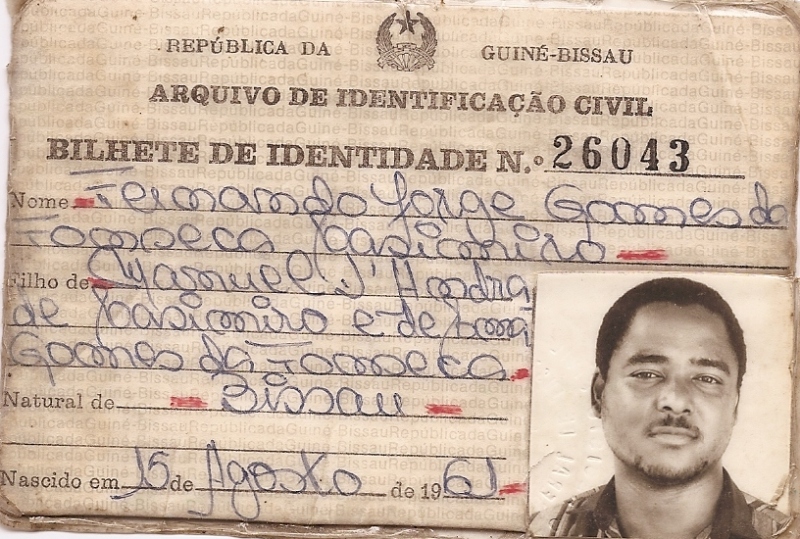 REPÚBLICA DA GUINÉ-BISSAU
ARQUIVO DE IDENTIFICAÇÃO CIVIL
BILHETE DE IDENTIDADE N.º 26043
Nome Fernando Jorge Gomes da
Fonseca Casimiro
Filho de Manuel d'Andra
de Casimiro e de
Gomes da Fonseca.
Natural de Bissau
Nascido em 15 de Agosto de 1961